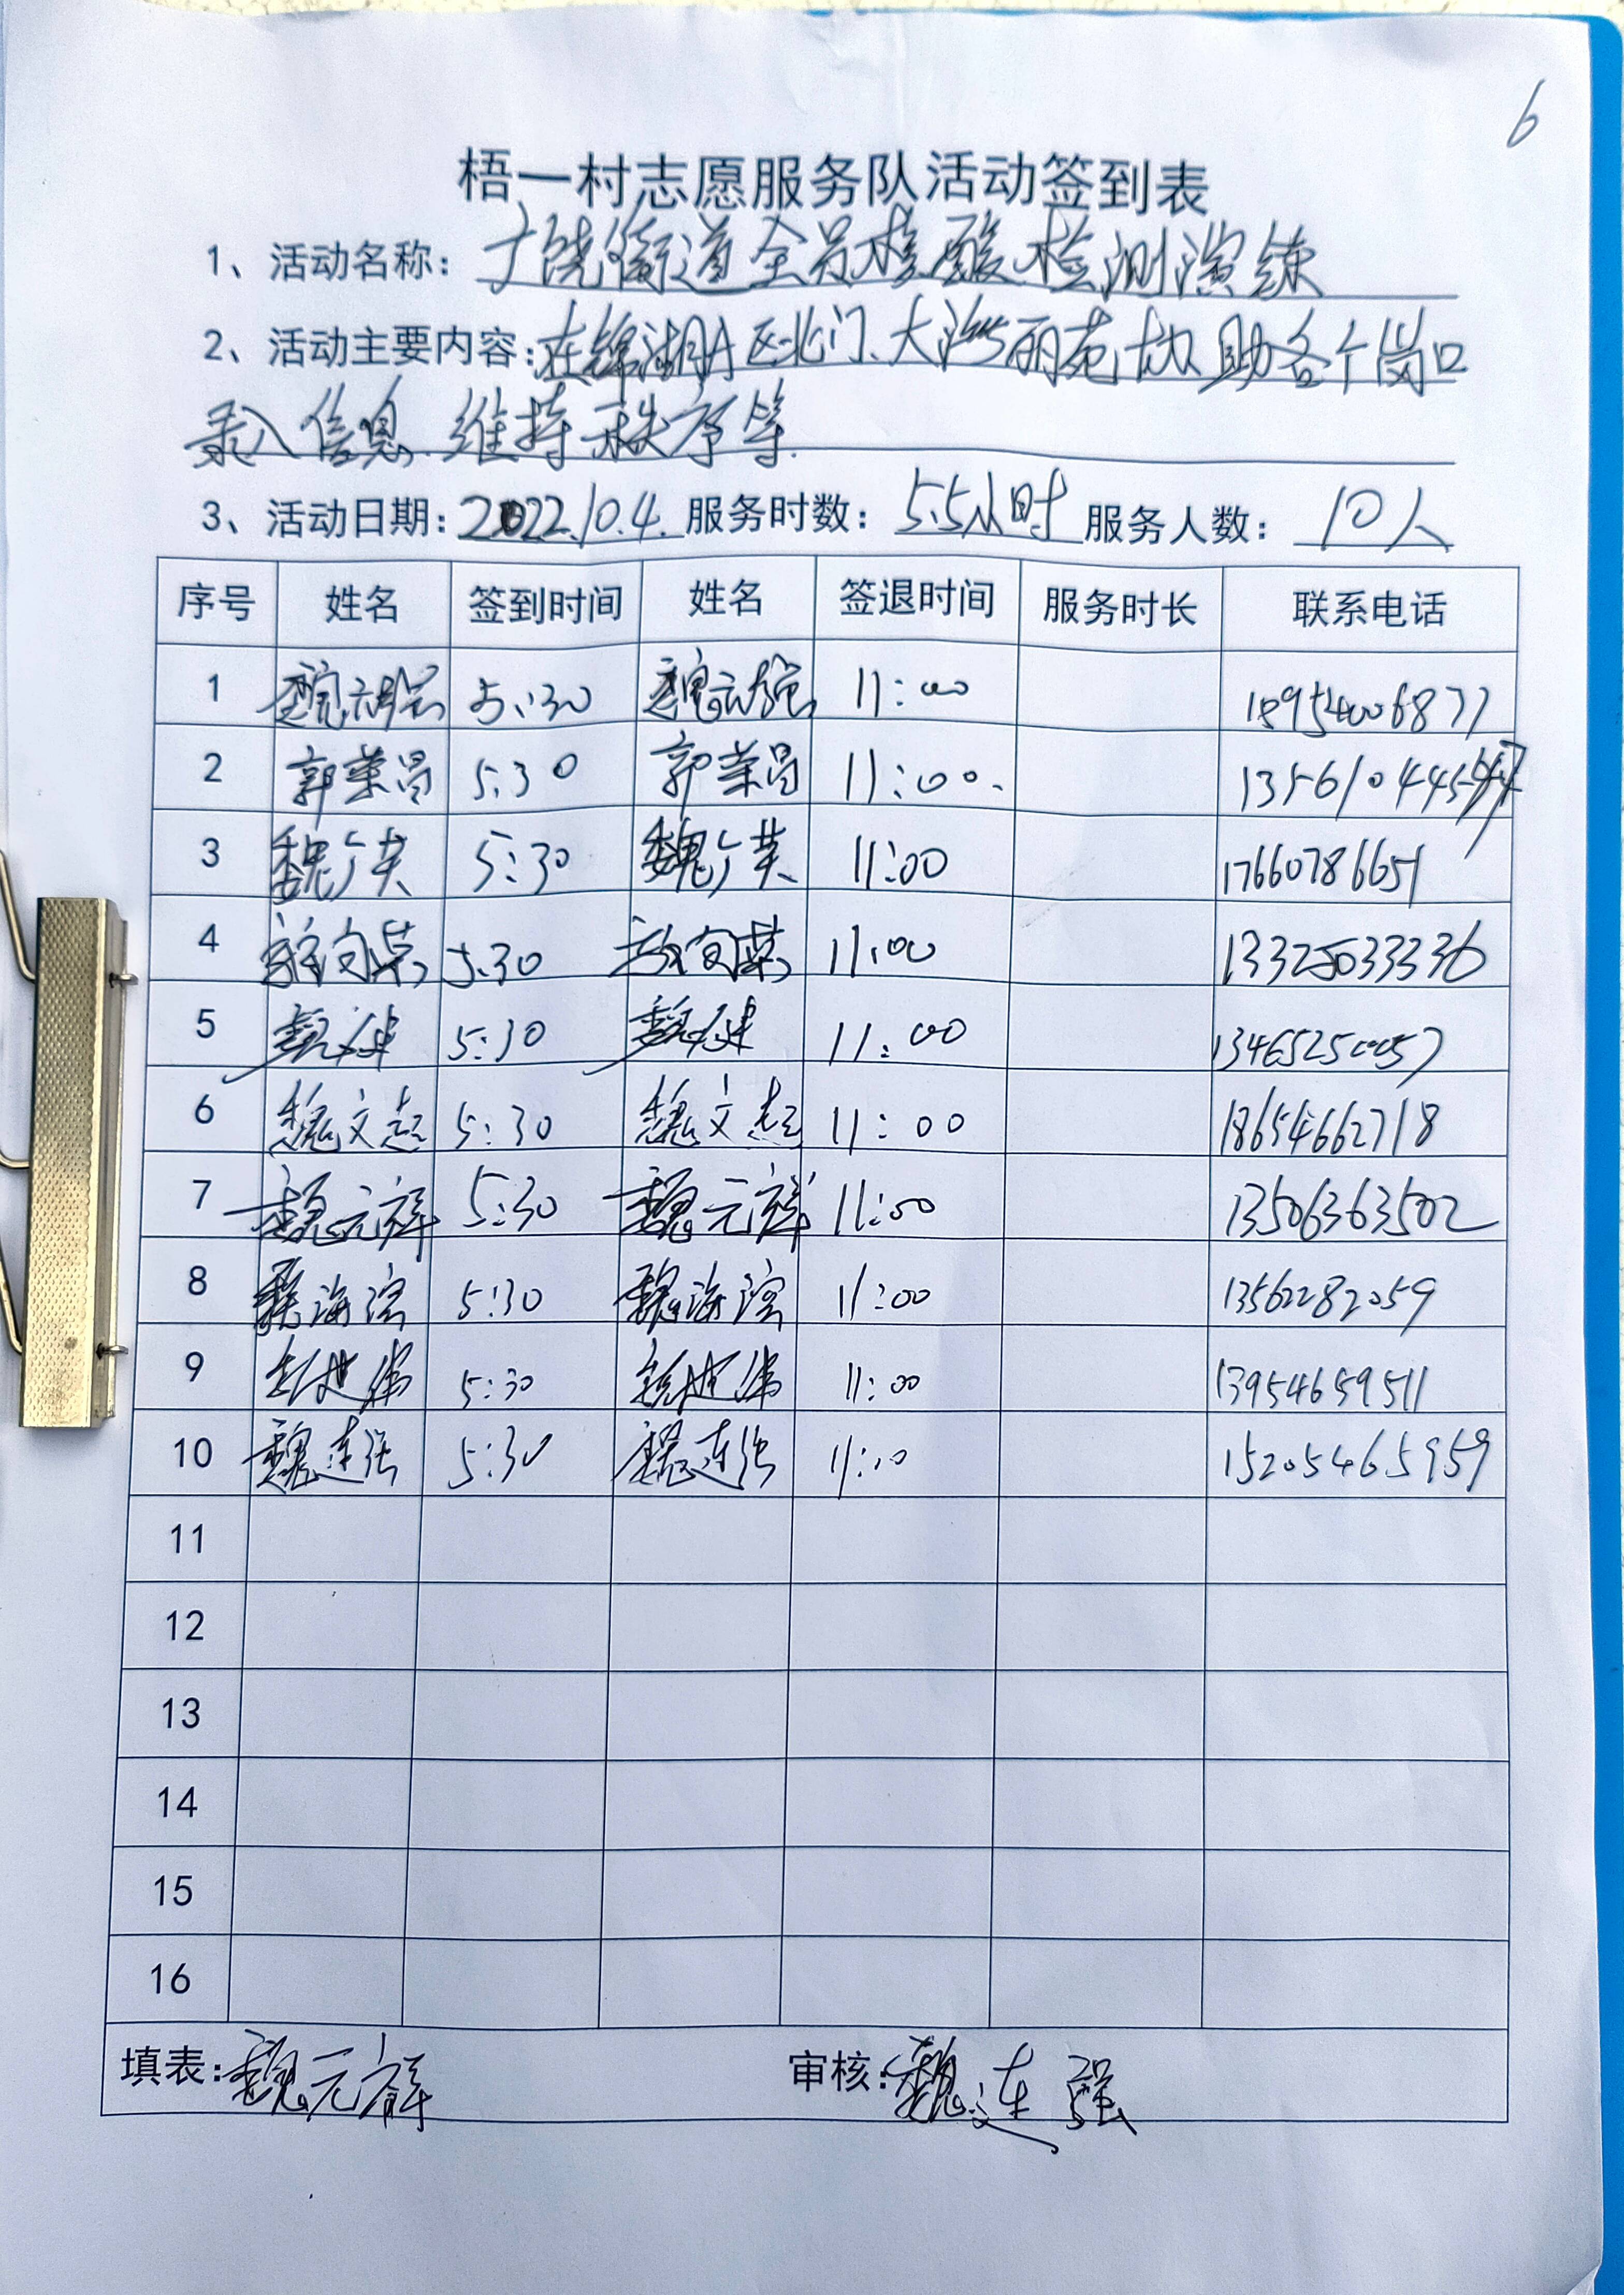 6
梧一村志愿服务队活动签到表
1、活动名称：广饶街道全员核酸检测演练
2、活动主要内容：在锦湖A区北门、大海丽苑协助各个岗口
录入信息、维持秩序等.
3、活动日期：2022.10.4. 服务时数：5.5小时 服务人数：10人
序号 姓名 签到时间 姓名 签退时间 服务时长 联系电话
1 5:30 11:00
2 郭荣昌 5:30 郭荣昌 11:00.
3 魏广英 5:30 魏广英 11:00 17660786651
4 5:30 11:00 13325033336
5 5:30 11:00 13465250057
6 魏文起 5:30 魏文起 11:00 18654662718
7 魏元祥 5:30 魏元祥 11:00 13506363502
8 5:30 11:00 13562282059
9 5:30 11:00 13954659511
10 魏连强 5:30 魏连强 11:00 15205465959
11
12
13
14
15
16
填表：魏元祥 审核：魏连强